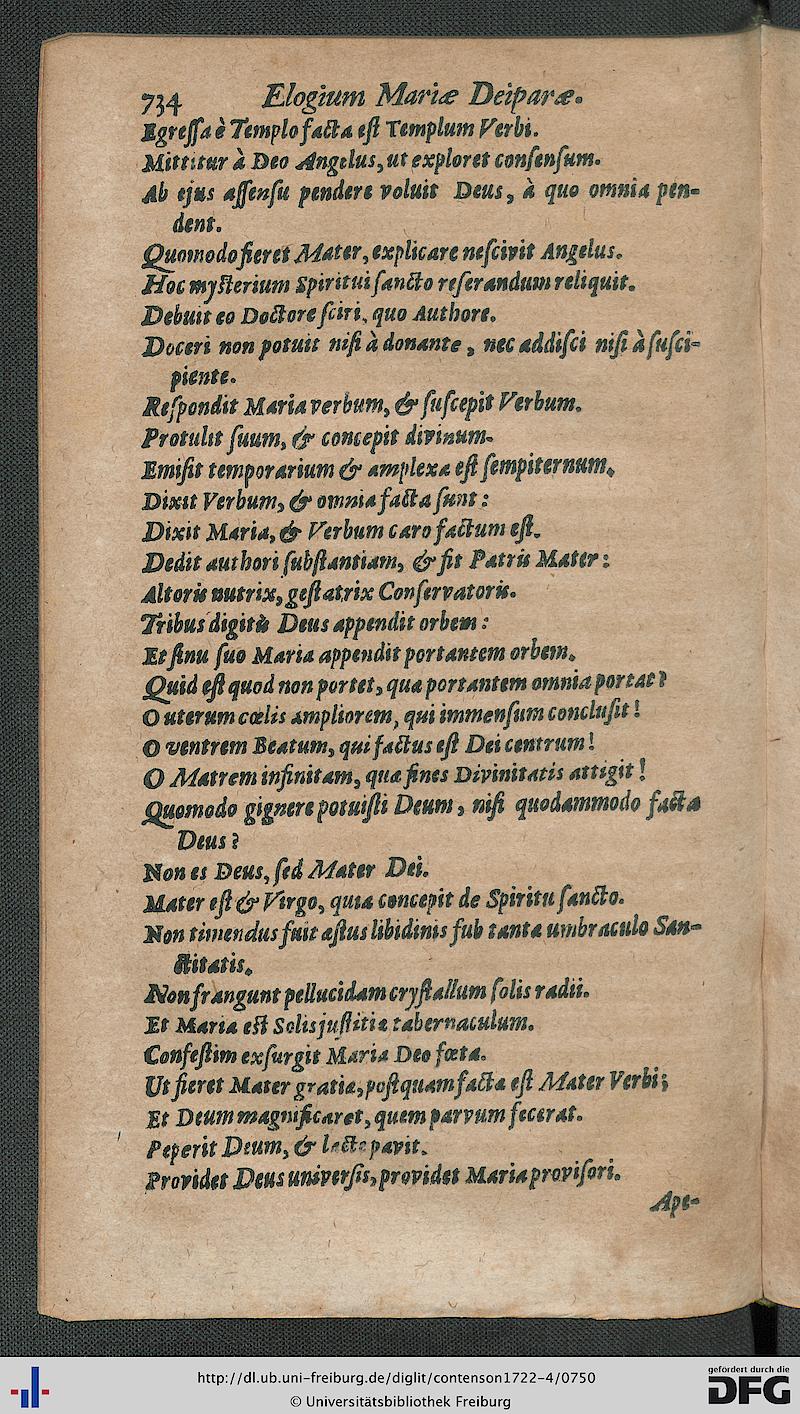 734 Elogium Mariæ Deiparæ.
Egreſſa è Templo facta eſt Templum Verbi.
Mittitur à Deo Angelus, ut exploret conſenſum.
Ab ejus aſſenſu pendere voluit Deus, à quo omnia pen-
dent.
Quomodo fieret Mater, explicare neſcivit Angelus.
Hoc myſterium Spiritui ſancto reſerandum reliquit.
Debuit eo Doctore ſciri, quo Authore.
Doceri non potuit niſi à donante, nec addiſci niſi à ſuſci-
piente.
Reſpondit Maria verbum, & ſuſcepit Verbum.
Protulit ſuum, & concepit divinum.
Emiſit temporarium & amplexa eſt ſempiternum.
Dixit Verbum, & omnia facta ſunt:
Dixit Maria, & Verbum caro factum eſt.
Dedit authori ſubſtantiam, & fit Patris Mater:
Altoris nutrix, geſtatrix Conſervatoris.
Tribus digitis Deus appendit orbem:
Et ſinu ſuo Maria appendit portantem orbem.
Quid eſt quod non portet, quæ portantem omnia portat?
O uterum cœlis ampliorem, qui immenſum concluſit!
O ventrem Beatum, qui factus eſt Dei centrum!
O Matrem infinitam, quæ fines Divinitatis attigit!
Quomodo gignere potuiſti Deum, niſi quodammodo facta
Deus?
Non es Deus, ſed Mater Dei.
Mater eſt & Virgo, quia concepit de Spiritu ſancto.
Non timendus fuit æſtus libidinis ſub tanta umbraculo San-
ctitatis.
Non frangunt pellucidam cryſtallum ſolis radii.
Et Maria eſt Solis juſtitiæ tabernaculum.
Confeſtim exſurgit Maria Deo fœta.
Ut fieret Mater gratiæ, poſtquam facta eſt Mater Verbi;
Et Deum magnificaret, quem parvum fecerat.
Peperit Deum, & lacte pavit.
Providet Deus univerſis, providet Maria proviſori.
Ape-
http://dl.ub.uni-freiburg.de/diglit/contenson1722-4/0750
© Universitätsbibliothek Freiburg
gefördert durch die
DFG